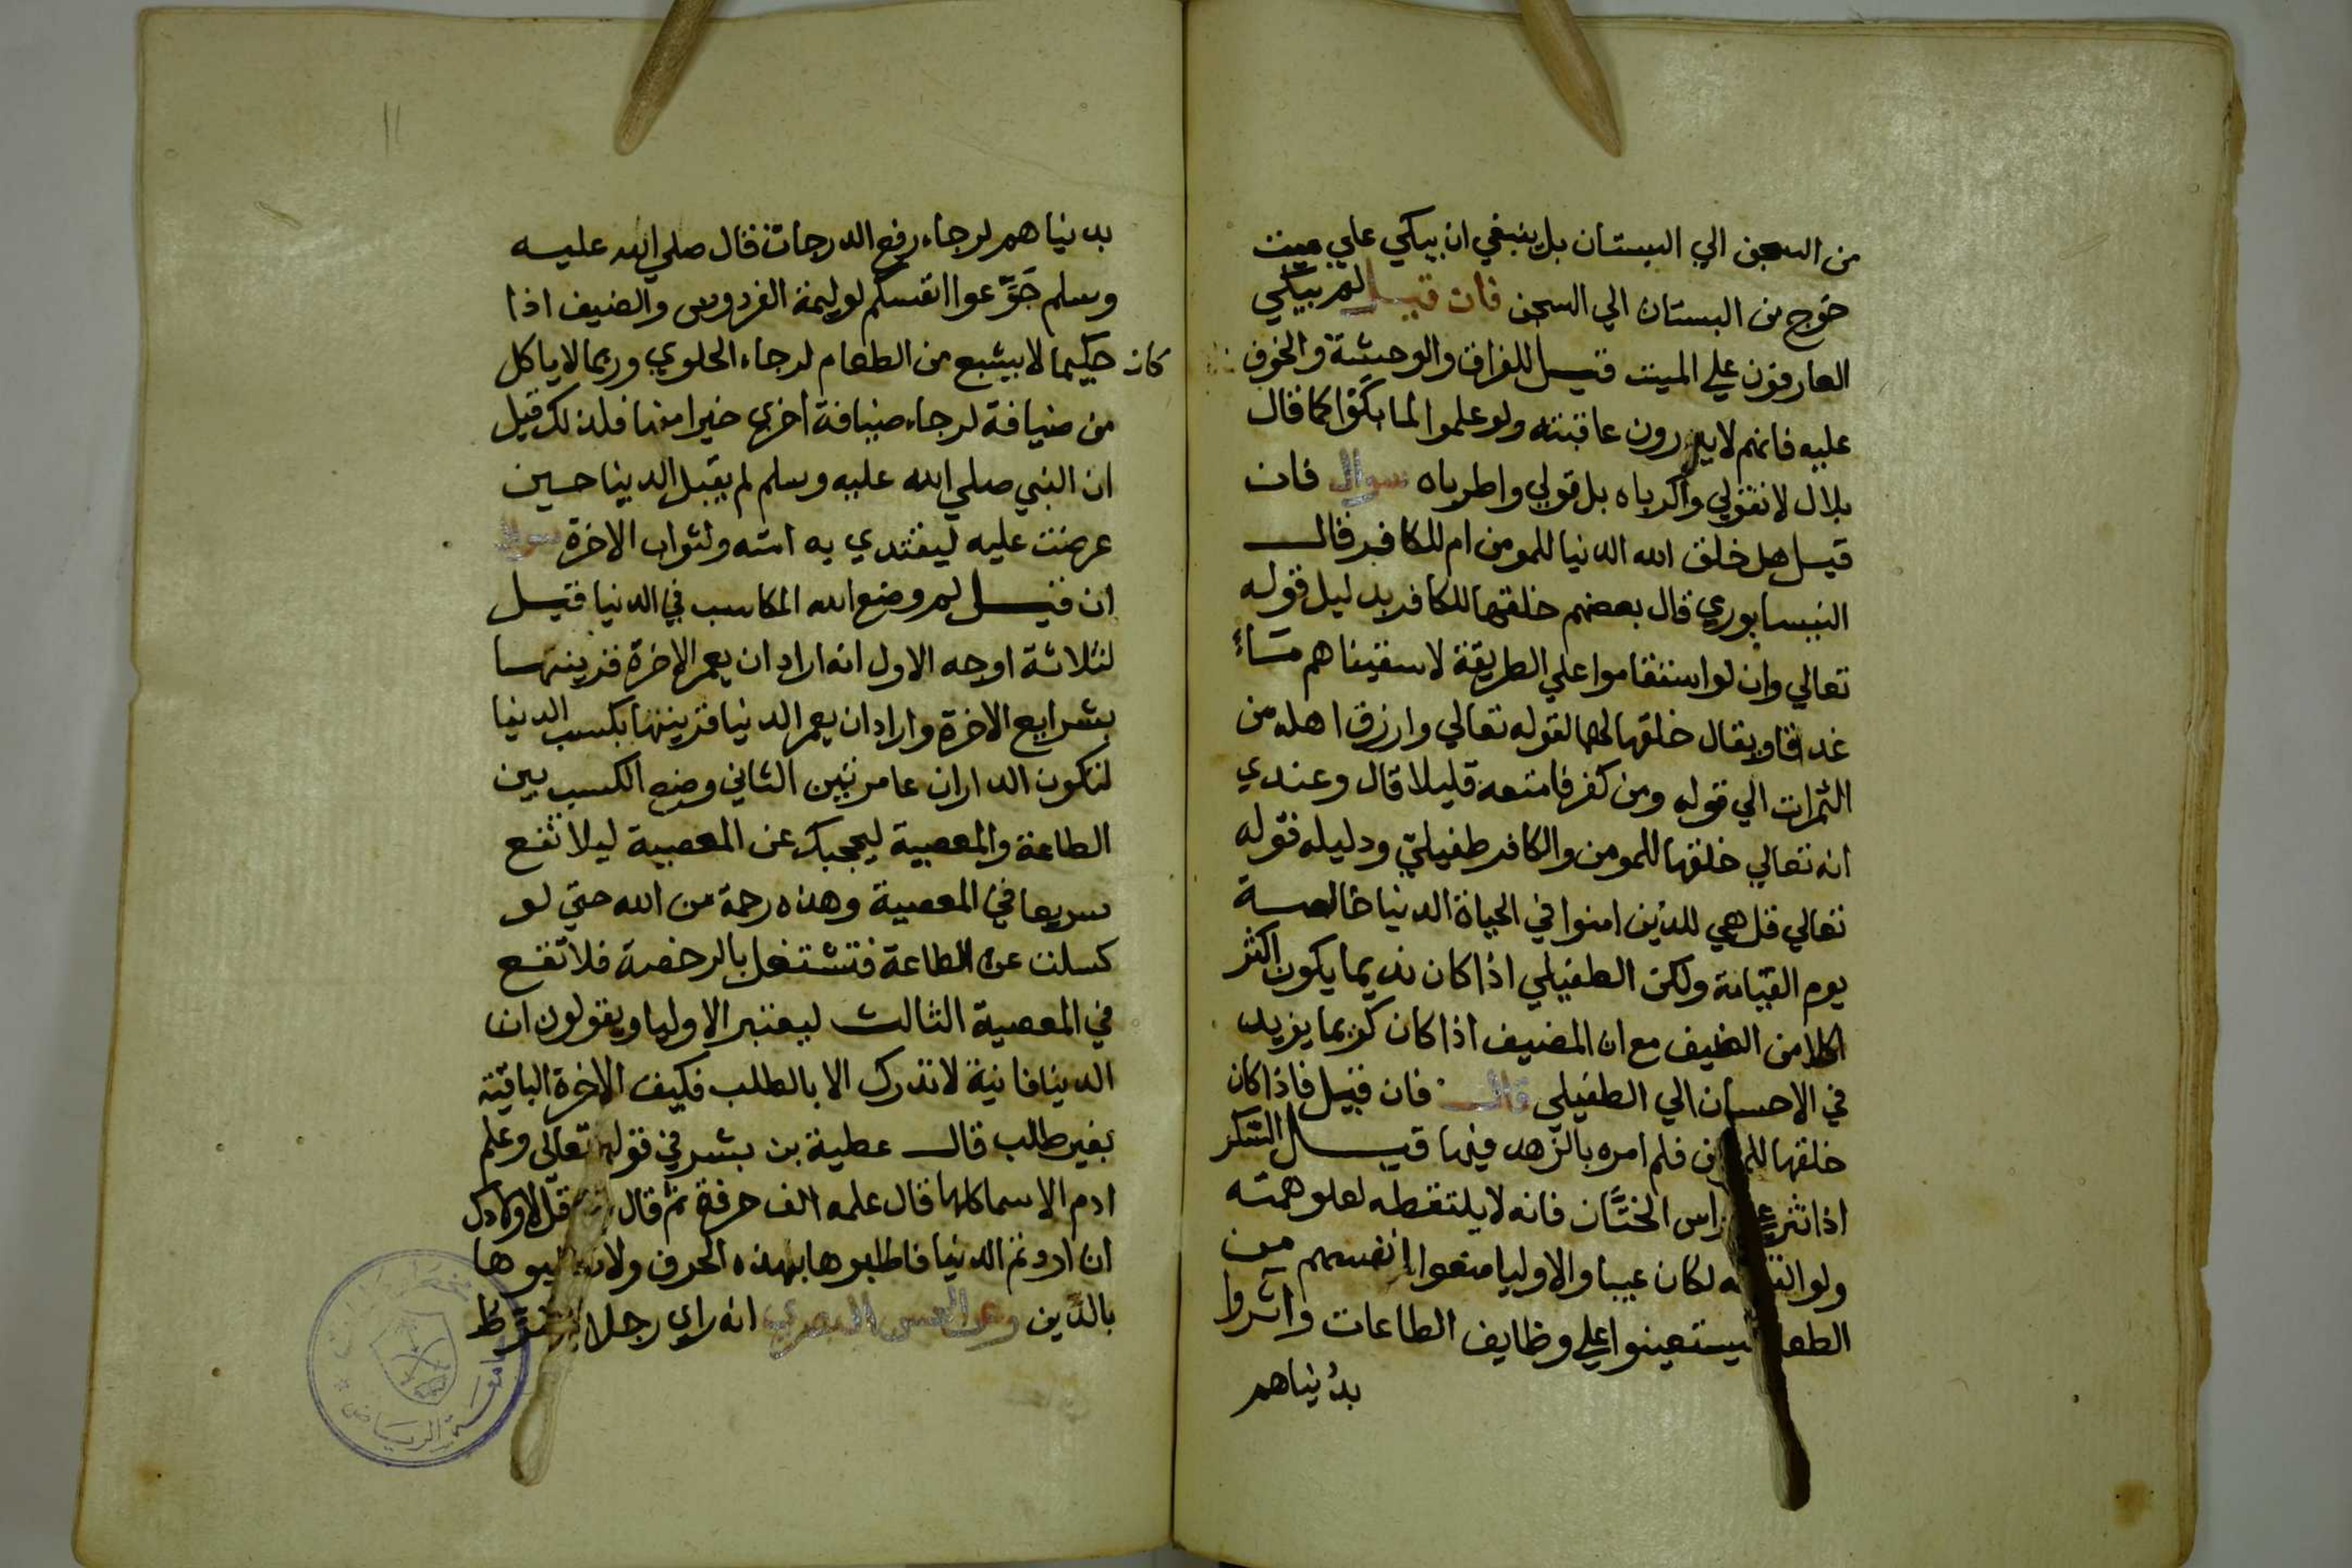 من السجن الي البستان بل ينبغي ان يبكي علي ميت
خرج من البستان الي السجن فان قيل لم يبكي
العارفون علي الميت قيل للفراق والوحشة والخوف
عليه فانهم لا يدرون عاقبته ولو علموا لما بكوا كما قال
بلال لا تقولي واكرباه بل قولي واطرباه سوال فان
قيل هل خلق الله الدنيا للمومن ام للكافر قال
النيسابوري قال بعضهم خلقها للكافر بدليل قوله
تعالي وان لو استقاموا علي الطريقة لاسقيناهم ماء
غدقا ويقال خلقها لهما لقوله تعالي وارزق اهله من
الثمرات الي قوله ومن كفر فامتعه قليلا قال وعندي
انه تعالي خلقها للمومن والكافر طفيلي ودليله قوله
تعالي قل هي للذين امنوا في الحياة الدنيا خالصة
يوم القيامة ولكن الطفيلي اذا كان نديما يكون اكثر
اكلا من الضيف مع ان المضيف اذا كان كريما يزيد
في الاحسان الي الطفيلي قال فان قيل فاذا كان
خلقها فلم امره بالزهد فيها قيل السكر
اذا نثر راس الختان فانه لا يلتقطه لعلو همته
ولو لكان عيبا والاوليا منعوا انفسهم من
ليستعينوا علي وظايف الطاعات واثروا
بدنياهم
11
بدنياهم لرجاء رفع الدرجات قال صلي الله عليه
وسلم جوعوا انفسكم لوليمة الفردوس والضيف اذا
كان حكيما لا يشبع من الطعام لرجاء الحلوي وربما لا ياكل
من ضيافة لرجاء ضيافة اخري خيرا منها فلذلك قيل
ان النبي صلي الله عليه وسلم لم يقبل الدنيا حين
عرضت عليه ليقتدي به امته ولثواب الاخرة سوال
ان قيل لم وضع الله المكاسب في الدنيا قيل
لثلاثة اوجه الاول انه اراد ان يعمر الاخرة فزينها
بشرايع الاخرة واراد ان يعمر الدنيا فزينها بكسب الدنيا
لتكون الداران عامرتين الثاني وضع الكسب بين
الطاعة والمعصية ليحجبك عن المعصية ليلا تقع
سريعا في المعصية وهذه رحمة من الله حتي لو
كسلت عن الطاعة فتشتغل بالرخصة فلا تقع
في المعصية الثالث ليعتبر الاوليا ويقولون ان
الدنيا فانية لا تدرك الا بالطلب فكيف الاخرة الباقية
بغير طلب قال عطية بن بشر في قوله تعالي وعلم
ادم الاسما كلها قال علمه الف حرفة ثم قال قل لاولادك
ان اردتم الدنيا فاطلبوها بهذه الحرف ولا
بالدين وعن الحسن البصري انه راي رجلا
جامعة الرياض